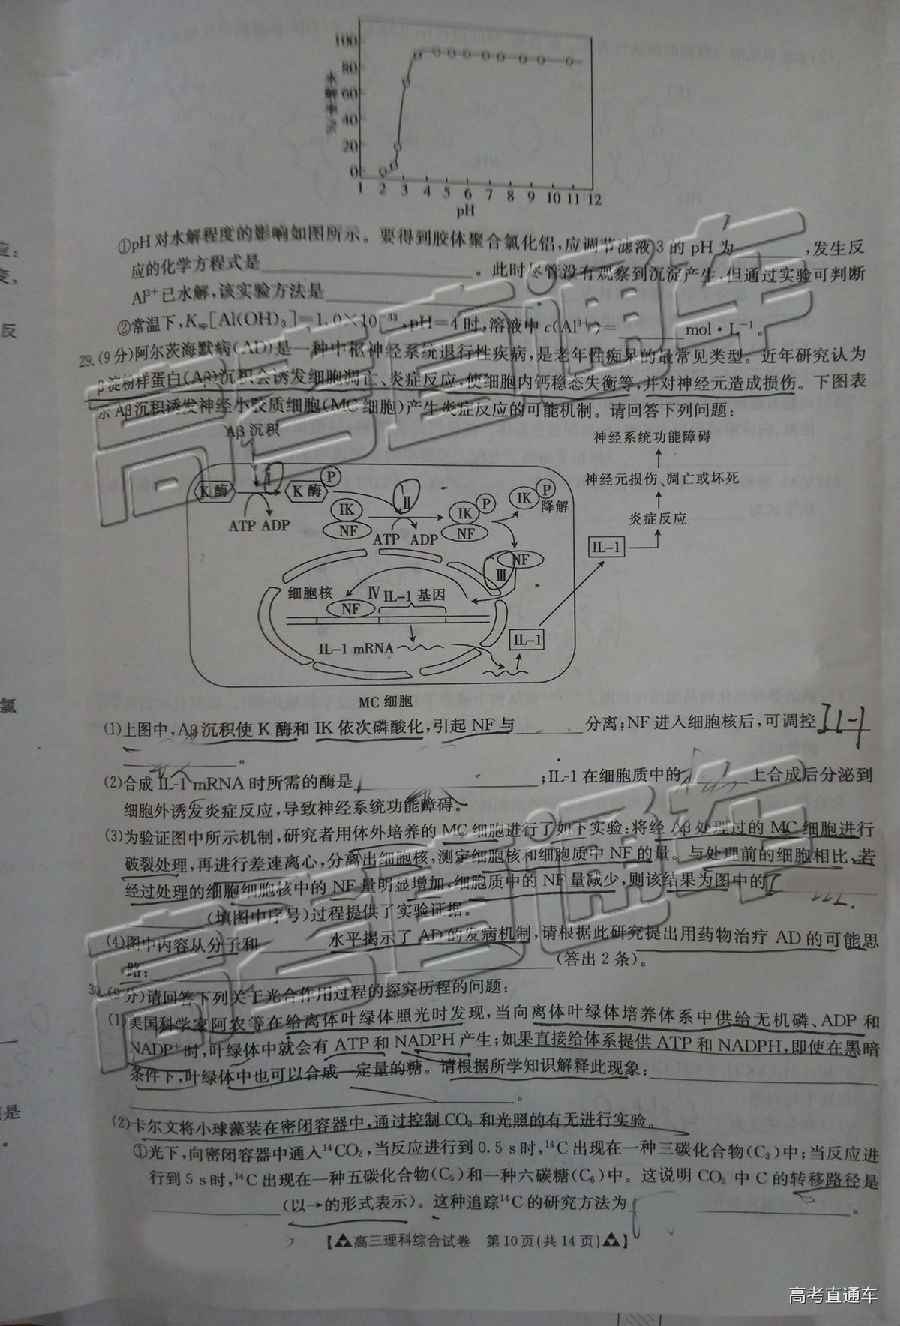 100
80
60
40
20
0
水解率/%
1 2 3 4 5 6 7 8 9 10 11 12
pH
①pH对水解程度的影响如图所示。要得到胶体聚合氯化铝,应调节滤液3的pH为______,发生反
应的化学方程式是______。此时尽管没有观察到沉淀产生,但通过实验可判断
Al³⁺已水解,该实验方法是______。
②常温下,Ksp[Al(OH)₃]=1.0×10⁻³³,pH=4时,溶液中c(Al³⁺)=______mol·L⁻¹。
29.(9分)阿尔茨海默病(AD)是一种中枢神经系统退行性疾病,是老年性痴呆的最常见类型。近年研究认为
β淀粉样蛋白(Aβ)沉积会诱发细胞凋亡、炎症反应,使细胞内钙稳态失衡等,并对神经元造成损伤。下图表
示Aβ沉积诱发神经小胶质细胞(MC细胞)产生炎症反应的可能机制。请回答下列问题:
Aβ沉积
神经系统功能障碍
神经元损伤、凋亡或坏死
炎症反应
IL-1
K酶 Ⅰ K酶 P Ⅱ
ATP ADP
IK NF
ATP ADP
IK P NF
IK P 降解
Ⅲ NF
细胞核 Ⅳ IL-1基因
NF
IL-1 mRNA
IL-1
MC细胞
(1)上图中,Aβ沉积使K酶和IK依次磷酸化,引起NF与______分离;NF进入细胞核后,可调控IL-1
______。
(2)合成IL-1 mRNA时所需的酶是______;IL-1在细胞质中的______上合成后分泌到
细胞外诱发炎症反应,导致神经系统功能障碍。
(3)为验证图中所示机制,研究者用体外培养的MC细胞进行了如下实验:将经Aβ处理过的MC细胞进行
破裂处理,再进行差速离心,分离出细胞核,测定细胞核和细胞质中NF的量。与处理前的细胞相比,若
经过处理的细胞细胞核中的NF量明显增加,细胞质中的NF量减少,则该结果为图中的______
______(填图中序号)过程提供了实验证据。
(4)图中内容从分子和______水平揭示了AD的发病机制,请根据此研究提出用药物治疗AD的可能思
路:______(答出2条)。
30.(9分)请回答下列关于光合作用过程的探究历程的问题:
(1)美国科学家阿农等在给离体叶绿体照光时发现,当向离体叶绿体培养体系中供给无机磷、ADP和
NADP⁺时,叶绿体中就会有ATP和NADPH产生;如果直接给体系提供ATP和NADPH,即使在黑暗
条件下,叶绿体中也可以合成一定量的糖。请根据所学知识解释此现象:______
______。
(2)卡尔文将小球藻装在密闭容器中,通过控制CO₂和光照的有无进行实验。
①光下,向密闭容器中通入¹⁴CO₂,当反应进行到0.5 s时,¹⁴C出现在一种三碳化合物(C₃)中;当反应进
行到5 s时,¹⁴C出现在一种五碳化合物(C₅)和一种六碳糖(C₆)中。这说明CO₂中C的转移路径是
______(以→的形式表示)。这种追踪¹⁴C的研究方法为______。
【高三理科综合试卷 第10页(共14页)】
高考直通车
高考直通车
高考直通车